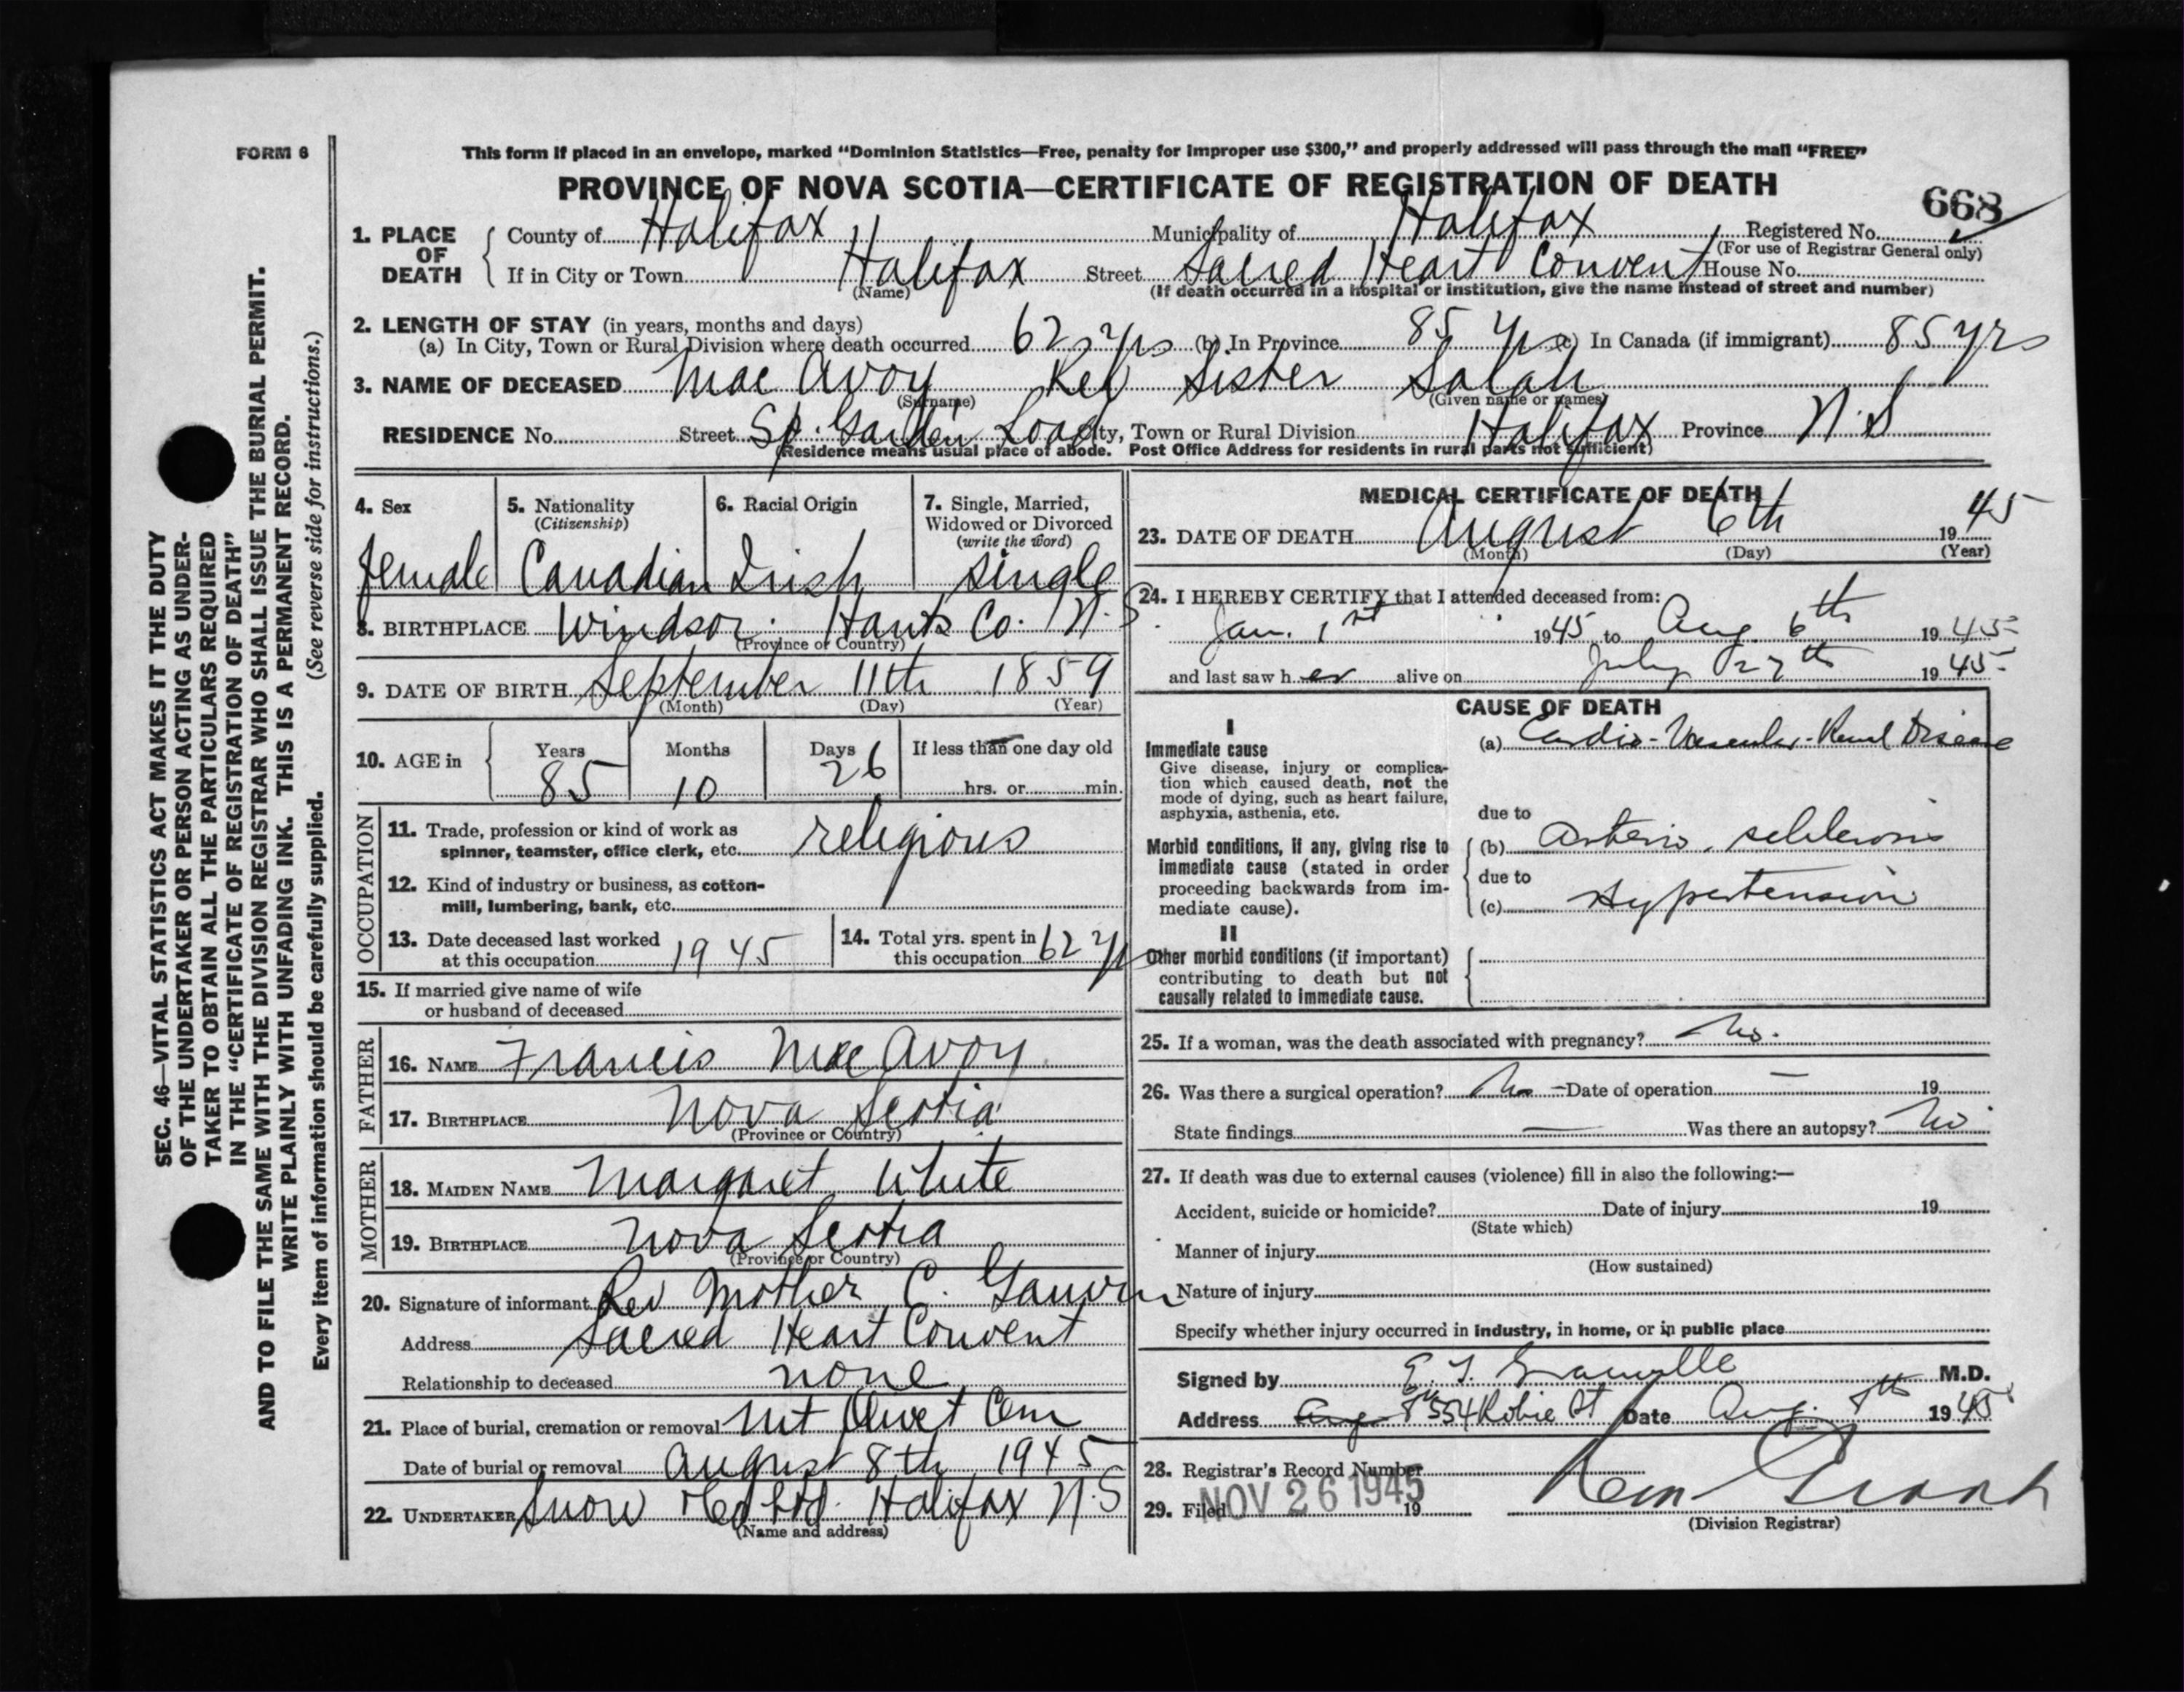 FORM 6
This form if placed in an envelope, marked “Dominion Statistics—Free, penalty for improper use $300,” and properly addressed will pass through the mail “FREE”
PROVINCE OF NOVA SCOTIA—CERTIFICATE OF REGISTRATION OF DEATH
668
1. PLACE OF DEATH
County of Halifax Municipality of Halifax Registered No.
(For use of Registrar General only)
If in City or Town Halifax Street Sacred Heart Convent House No.
(Name) (If death occurred in a hospital or institution, give the name instead of street and number)
2. LENGTH OF STAY (in years, months and days)
(a) In City, Town or Rural Division where death occurred 62 yrs (b) In Province 85 yrs (c) In Canada (if immigrant) 85 yrs
3. NAME OF DECEASED Mac Avoy Rev Sister Salah
(Surname) (Given name or names)
RESIDENCE No. Street Sp. Garden Load City, Town or Rural Division Halifax Province N.S
(Residence means usual place of abode. Post Office Address for residents in rural parts not sufficient)
4. Sex
female
5. Nationality
(Citizenship)
Canadian
6. Racial Origin
Irish
7. Single, Married,
Widowed or Divorced
(write the word)
single
8. BIRTHPLACE Windsor. Hants Co. N.S.
(Province or Country)
9. DATE OF BIRTH September 11th 1859
(Month) (Day) (Year)
10. AGE in
Years Months Days If less than one day old
85 10 26 hrs. or min.
OCCUPATION
11. Trade, profession or kind of work as
spinner, teamster, office clerk, etc. religious
12. Kind of industry or business, as cotton-
mill, lumbering, bank, etc.
13. Date deceased last worked
at this occupation 1945
14. Total yrs. spent in
this occupation 62 yrs
15. If married give name of wife
or husband of deceased
FATHER
16. NAME Francis Mac Avoy
17. BIRTHPLACE Nova Scotia
(Province or Country)
MOTHER
18. MAIDEN NAME Margaret White
19. BIRTHPLACE Nova Scotia
(Province or Country)
20. Signature of informant Rev Mother C. Gauvin
Address Sacred Heart Convent
Relationship to deceased none
21. Place of burial, cremation or removal Mt Olivet Cem
Date of burial or removal August 8th 1945
22. UNDERTAKER Snow Ltd. Halifax N.S
(Name and address)
MEDICAL CERTIFICATE OF DEATH
23. DATE OF DEATH August 6th 1945
(Month) (Day) (Year)
24. I HEREBY CERTIFY that I attended deceased from:
Jan. 1st 1945 to Aug 6th 1945
and last saw her alive on July 27th 1945
CAUSE OF DEATH
I
Immediate cause
Give disease, injury or complica-
tion which caused death, not the
mode of dying, such as heart failure,
asphyxia, asthenia, etc.
(a) Cardio-Vascular-Renal Disease
due to
Morbid conditions, if any, giving rise to
immediate cause (stated in order
proceeding backwards from im-
mediate cause).
(b) Arterio. sclerosis
due to
(c) Hypertension
II
Other morbid conditions (if important)
contributing to death but not
causally related to immediate cause.
25. If a woman, was the death associated with pregnancy? No.
26. Was there a surgical operation? No — Date of operation — 19
State findings — Was there an autopsy? No
27. If death was due to external causes (violence) fill in also the following:—
Accident, suicide or homicide? Date of injury 19
(State which)
Manner of injury
(How sustained)
Nature of injury
Specify whether injury occurred in industry, in home, or in public place
Signed by E. F. Granville M.D.
Address Aug 8th 554 Robie St Date Aug. 8th 1945
28. Registrar's Record Number
29. Filed NOV 26 1945 19
(Division Registrar)
SEC. 46—VITAL STATISTICS ACT MAKES IT THE DUTY
OF THE UNDERTAKER OR PERSON ACTING AS UNDER-
TAKER TO OBTAIN ALL THE PARTICULARS REQUIRED
IN THE “CERTIFICATE OF REGISTRATION OF DEATH”
AND TO FILE THE SAME WITH THE DIVISION REGISTRAR WHO SHALL ISSUE THE BURIAL PERMIT.
WRITE PLAINLY WITH UNFADING INK. THIS IS A PERMANENT RECORD.
Every item of information should be carefully supplied. (See reverse side for instructions.)